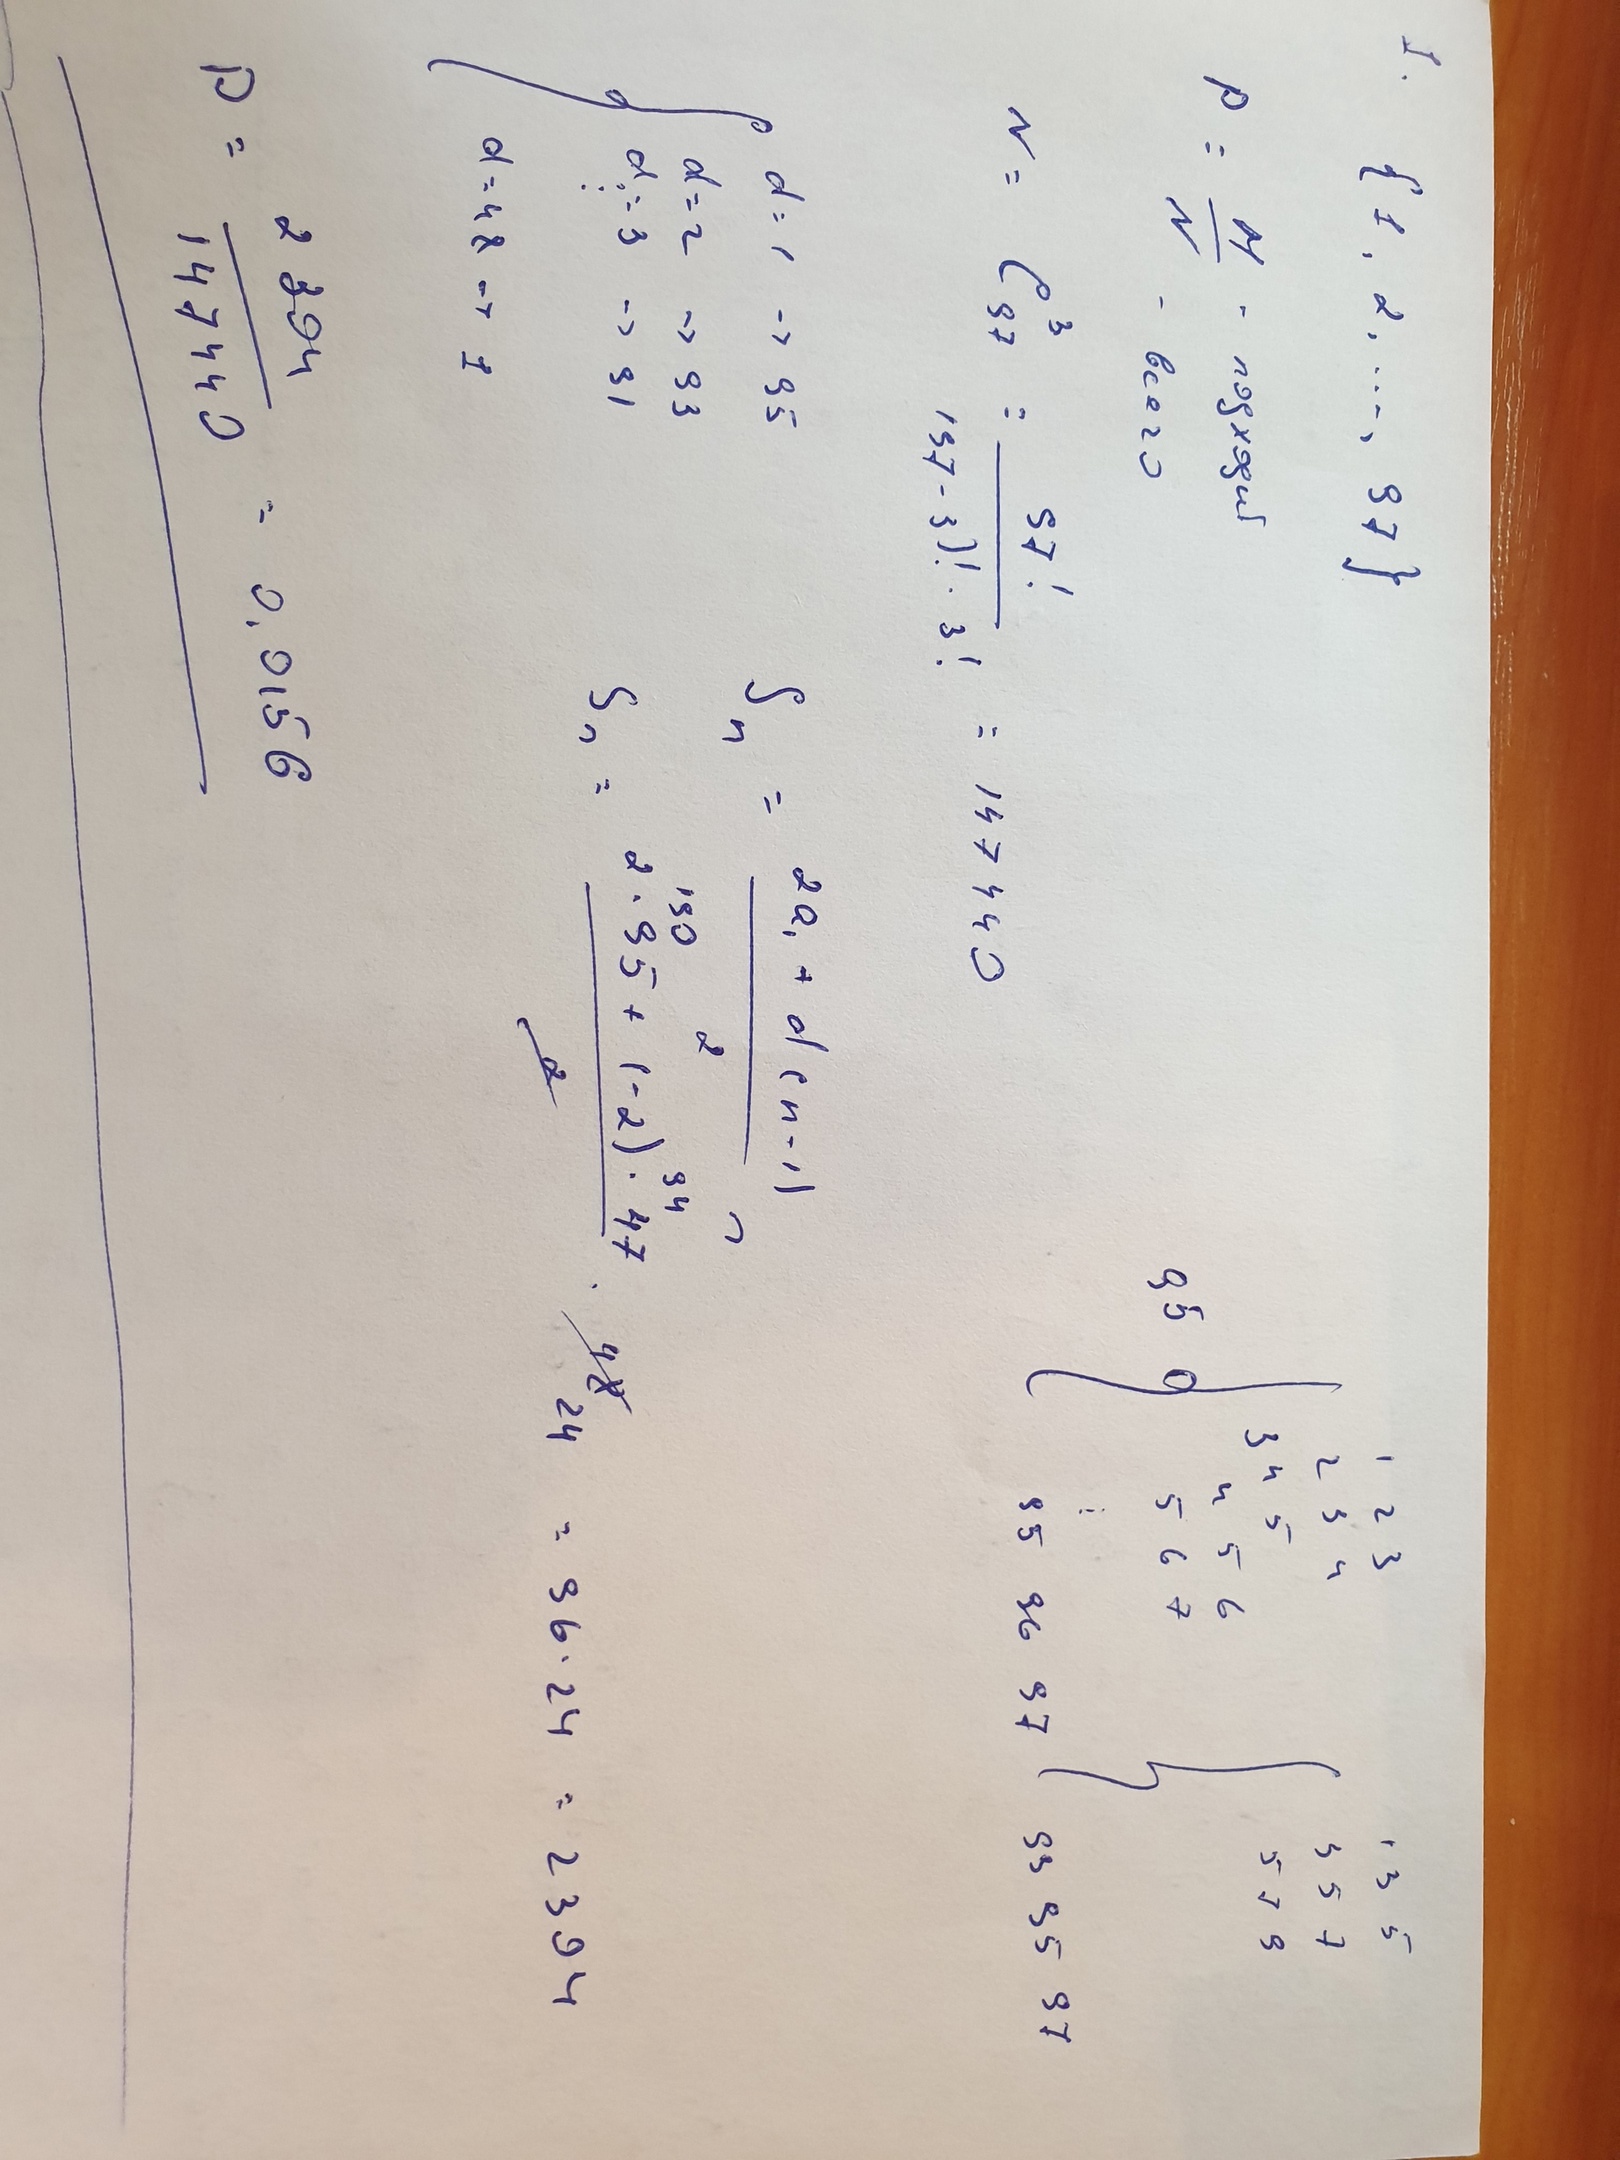 1.
{1, 2, ..., 97}
P = M/N - подходит
- всего
N = C³₉₇ = 97! / (97-3)! · 3! = 147440
1 2 3
2 3 4
3 4 5
4 5 6
5 6 7
⋮
95 96 97
95
1 3 5
3 5 7
5 7 9
93 95 97
d=1 -> 95
d=2 -> 93
d=3 -> 91
⋮
d=48 -> 1
Sₙ = (2a₁ + d(n-1)) / 2 n
190 94
Sₙ = (2·95 + (-2)·47) / 2 · 48 24 = 96·24 = 2304
P = 2304 / 147440 = 0,0156